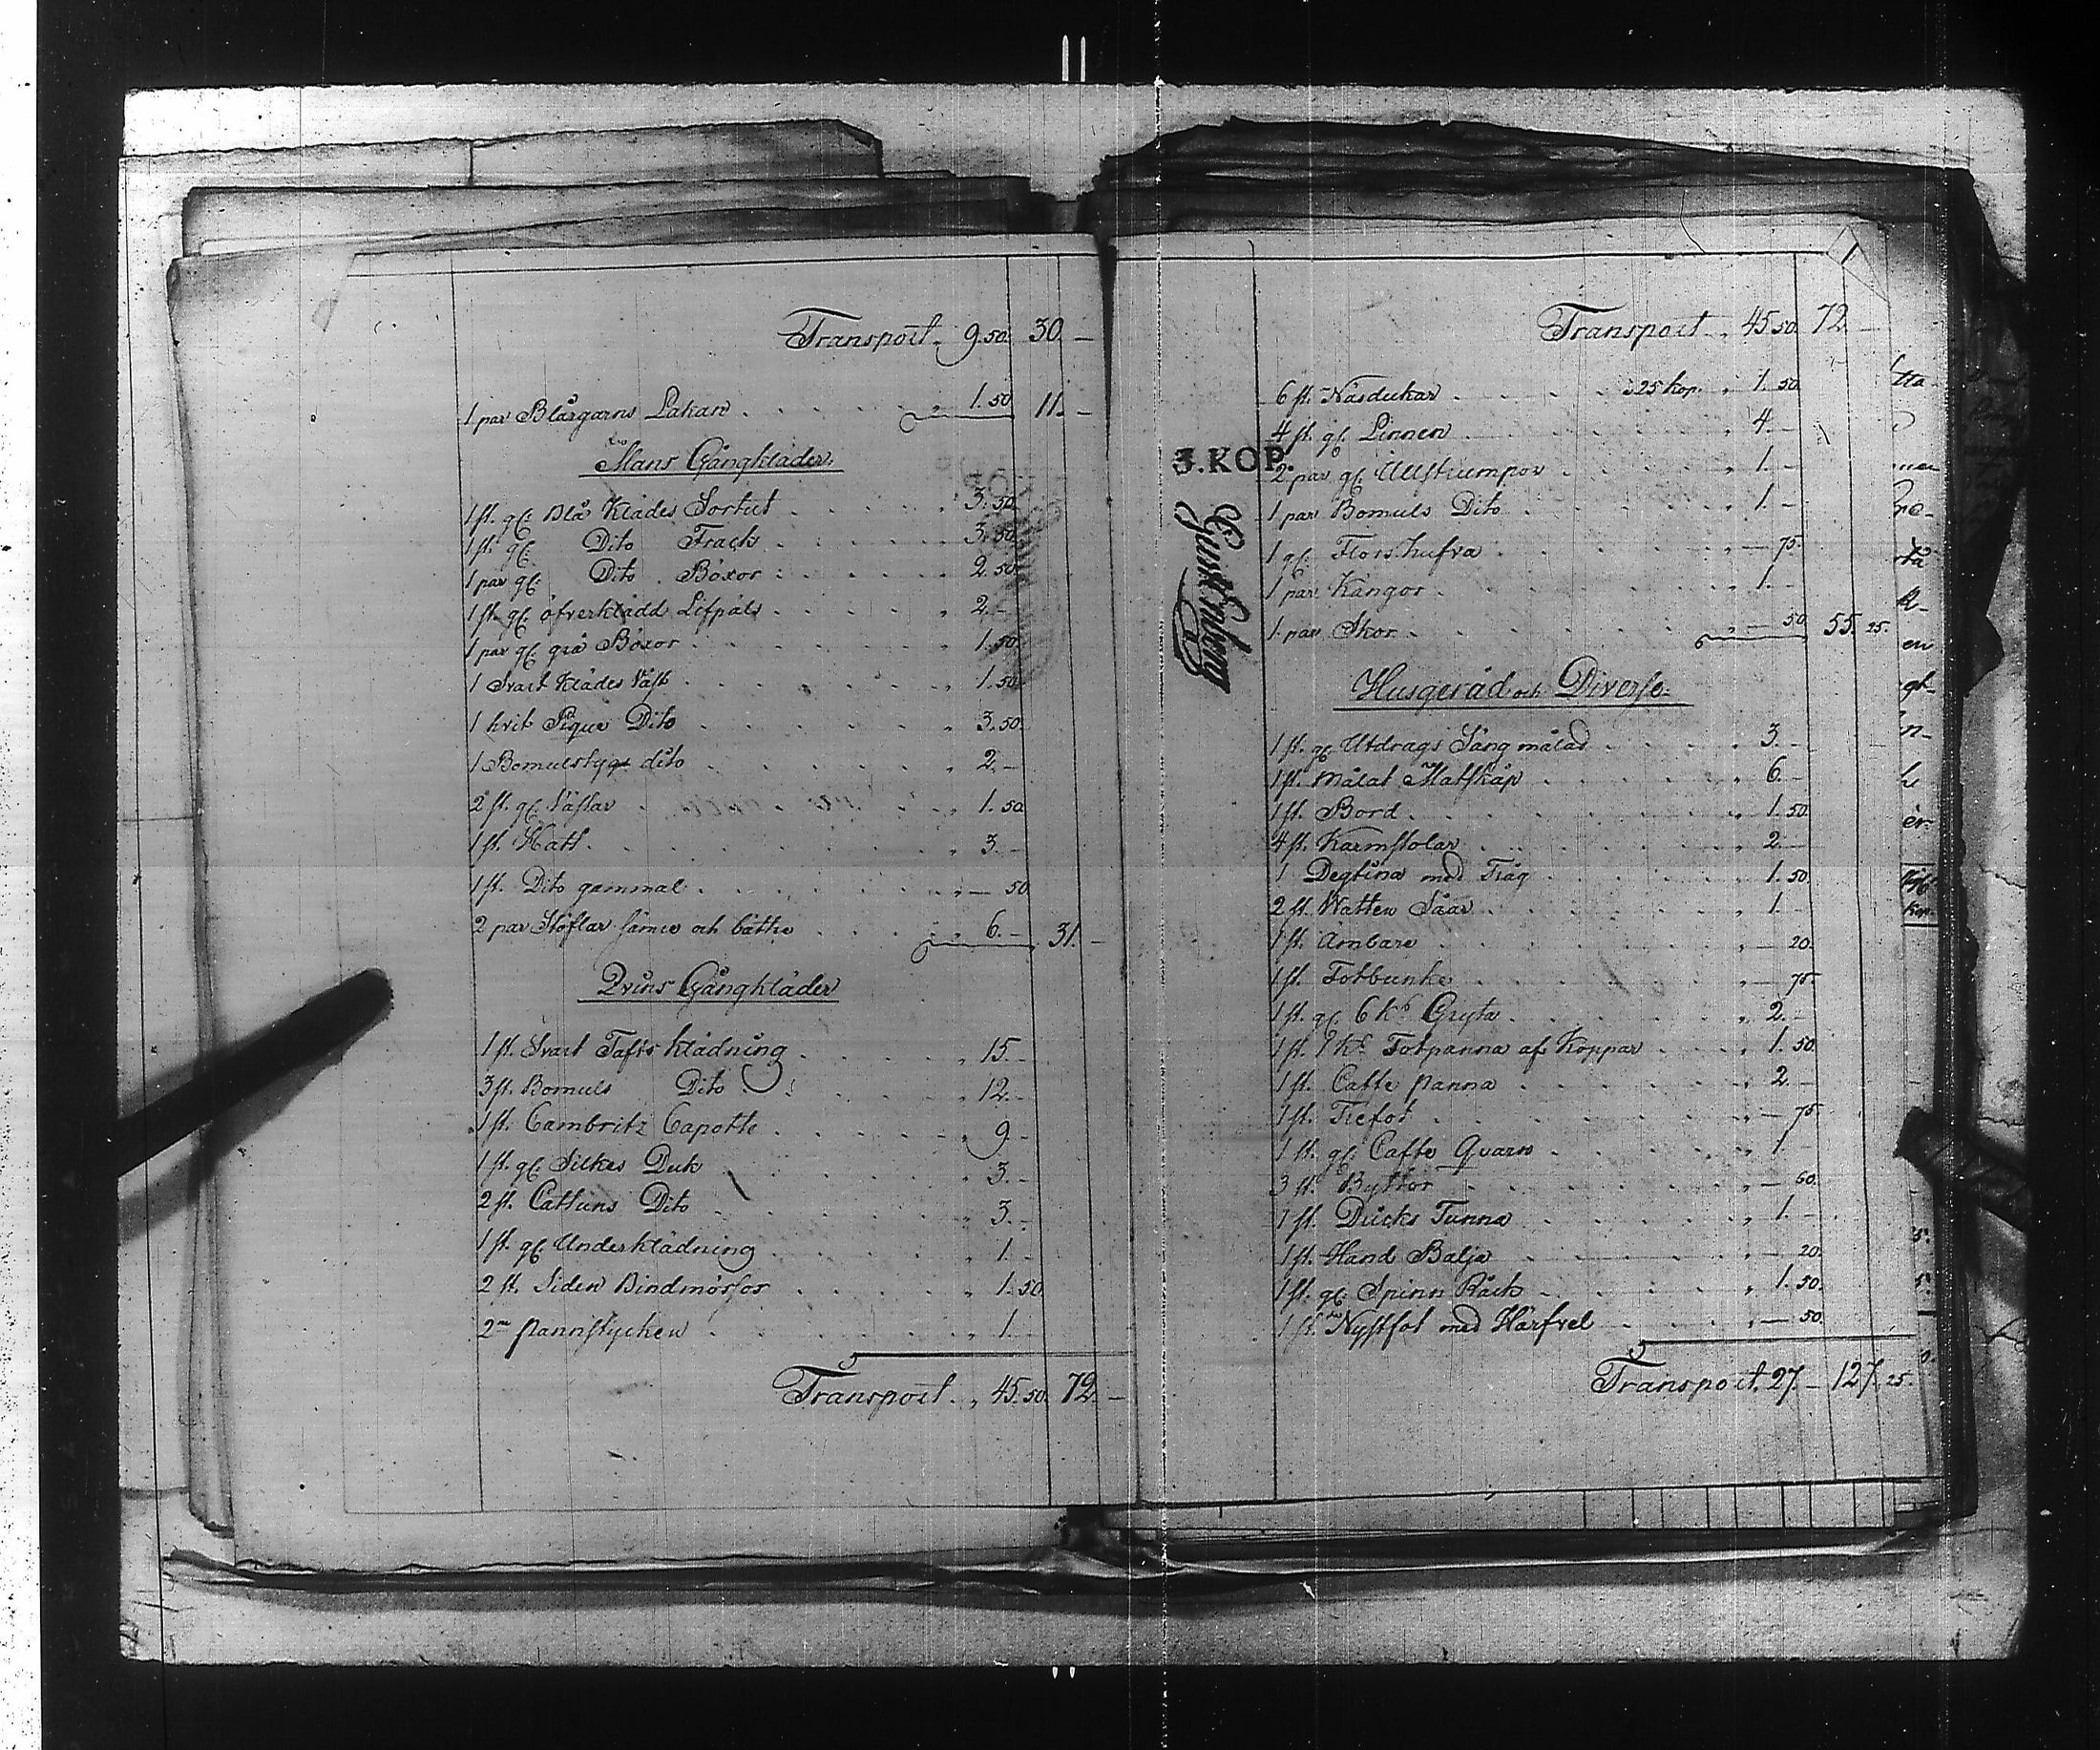 Transport „ 9.50. 30. —
1 par Blårgarns Lakan . . . „ 1.50 11. —
Mans Gångkläder.
1 st. gl. Blå Klädes Sortut . . . „ 3.50.
1 st. gl. Dito Frack . . . „ 3.50.
1 par gl. Dito Böxor . . . „ 2.50.
1 st. gl. öfverklädd Lifpäls . . . „ 2. —
1 par gl. grå Böxor . . . „ 1.50.
1 Svart Klädes Väst . . . „ 1.50.
1 hvit Pique Dito . . . „ 3.50.
1 Bomulstyg dito . . . „ 2. —
2 st. gl. Västar . . . „ 1.50
1 st. Hatt . . . „ 3. —
1 st. Dito gammal . . . „ — 50
2 par Stöflar sämre och bättre . . . „ 6. — 31. —
Qvins Gångkläder
1 st. Svart Tafts Klädning . . . „ 15. —
3 st. Bomuls Dito . . . „ 12. —
1 st. Cambritz Capotte . . . „ 9 —
1 st. gl. Silkes Duk . . . „ 3. —
2 st. Cattuns Dito . . . „ 3. —
1 st. gl. Underklädning . . . „ 1. —
2 st. Siden Bindmössor . . . „ 1.50
2 „ pannstycken . . . „ 1. —
Transport „ 45.50. 72. —
Transport „ 45.50. 72. —
6 st. Näsdukar . . . à 25 kop. „ 1.50
4 st. gl. Linnen . . . „ 4. —
3.KOP.
2 par gl. Ullstrumpor . . . „ 1. —
1 par Bomuls Dito . . . „ 1. —
1 gl. Florshufva . . . „ — 75.
1 par Kängor . . . „ 1. —
1 par Skor . . . „ — 50 55. 25.
Husgeråd och Diverse.
1 st. gl. Utdrags Säng målad . . . „ 3. —
1 st. målat Matskåp . . . „ 6. —
1 st. Bord . . . „ 1.50.
4 st. Karmstolar . . . „ 2. —
1 Degtina med Tråg . . . „ 1.50.
2 st. Watten Såar . . . „ 1. —
1 st. Ämbare . . . „ — 20.
1 st. Fotbunke . . . „ — 75.
1 st. gl. 6 Gryta . . . „ 2. —
1 st. Fotpanna af Koppar . . . „ 1.50.
1 st. Caffe panna . . . „ 2. —
1 st. Trefot . . . „ — 75
1 st. gl. Caffe Qvarn . . . „ 1. —
3 st. Byttor . . . „ — 60.
1 st. Dricks Tunna . . . „ 1. —
1 st. Hand Balja . . . „ — 20.
1 st. gl. Spinn Råck . . . „ 1.50.
1 st. Nystfot med Härfvel . . . „ — 50.
Transport „ 27. — 127. 25.